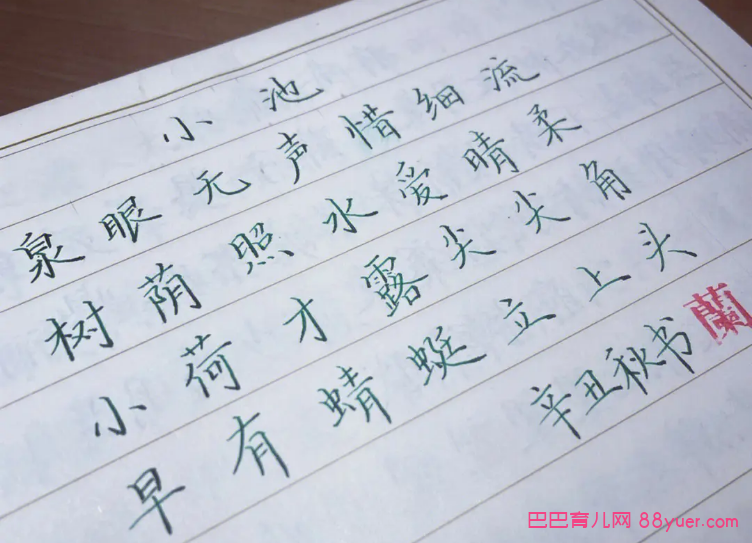 小池
泉眼无声惜细流
树荫照水爱晴柔
小荷才露尖尖角
早有蜻蜓立上头
辛丑秋书
蘭
巴巴育儿网 88yuer.com